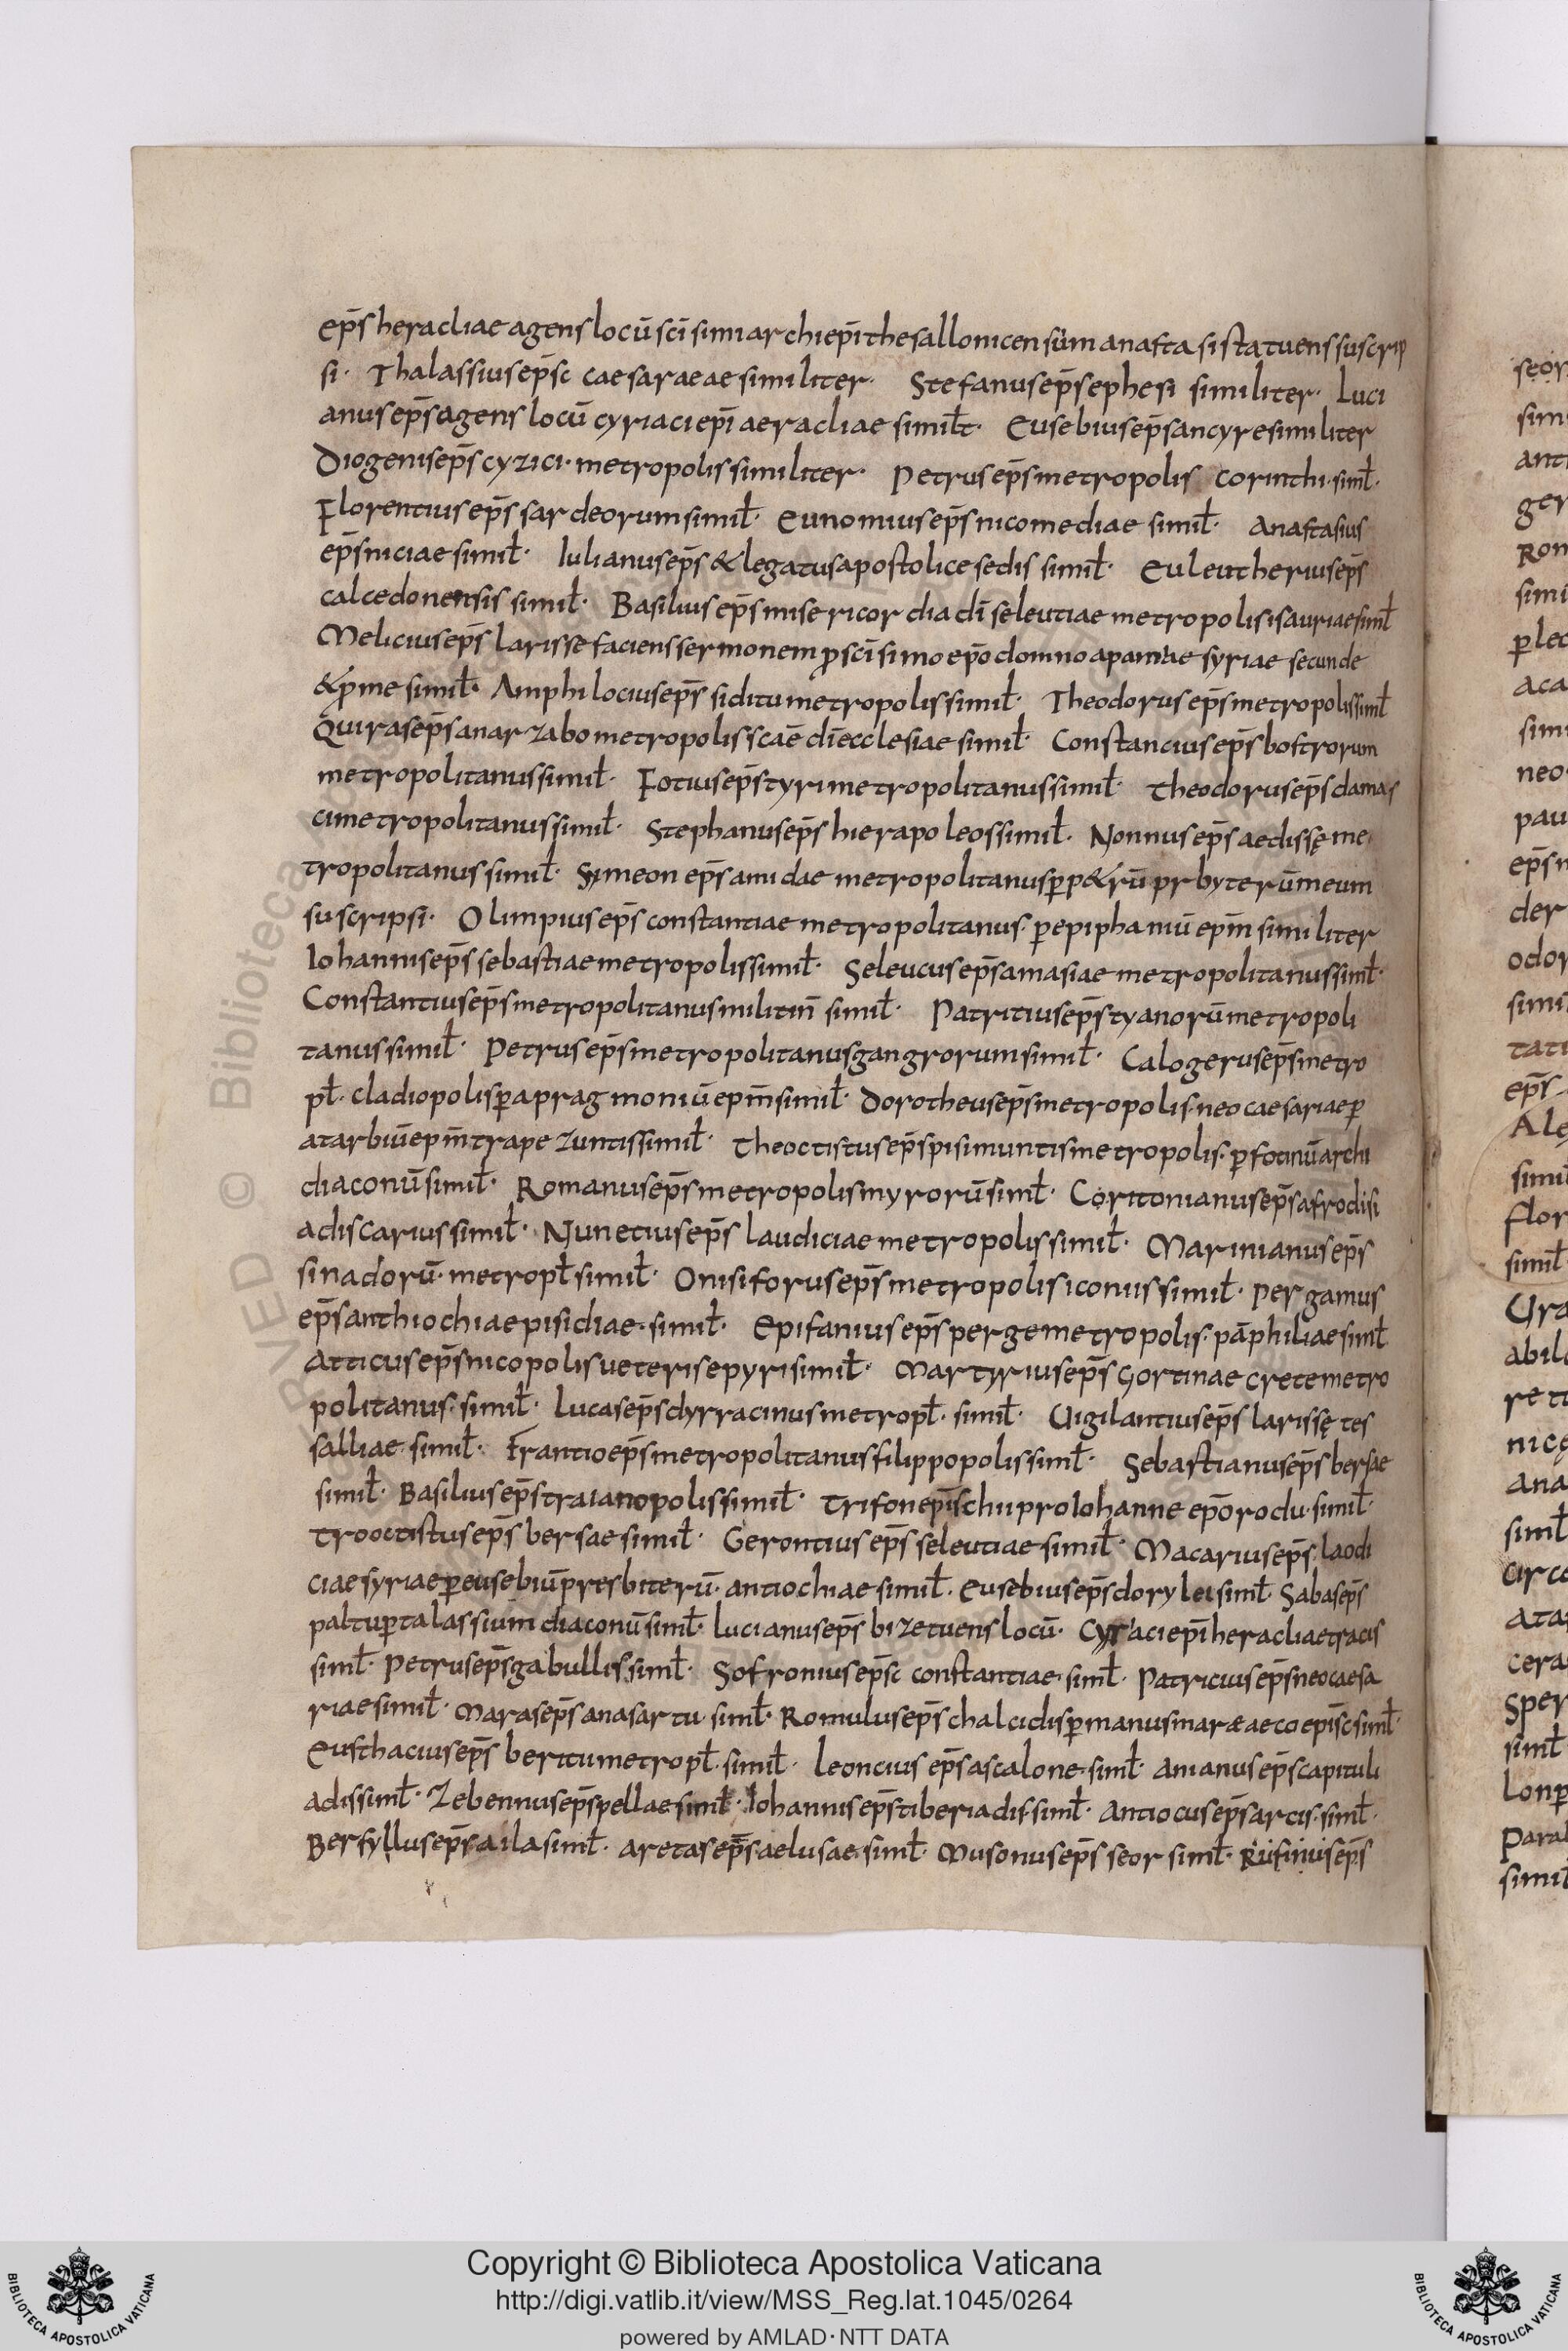 ep̄s heracliae agens locū sc̄i simi archiep̄i thesallonicensum anastasi statuens suscrip
si · Thalassius ep̄sc caesaraeae similiter · Stefanus ep̄s ephesi similiter · Luci
anus ep̄s agens locū cyriaci ep̄i aeracliae simiłt · Eusebius ep̄s ancyre similiter
Diogenis ep̄s cyzici · metropolis similiter · Petrus ep̄s metropolis corinthi · simł ·
Florentius ep̄s sardeorum simił · Eunomius ep̄s nicomediae simił · Anastasius
ep̄s niciae simił · Iulianus ep̄s & legatus apostolice sedis simił · Euleutherius ep̄s
calcedonensis simił · Basilius ep̄s misericordia dī seleutiae metropolis isauriae simł
Melicius ep̄s larisse faciens sermonem ꝓ sc̄i simo ep̄o domno apamiae syriae secunde
& ꝑme simił · Amphilocius ep̄s siditu metropolis simił · Theodorus ep̄s metropolis simł
Quiras ep̄s anarzabo metropolis scāe dī ecclesiae simił · Constancius ep̄s bostrorum
metropolitanus simił · Fotius ep̄s tyri metropolitanus simił · Theodorus ep̄s damas
ci metropolitanus simił · Stephanus ep̄s hierapoleos simił · Nonnus ep̄s aedissę me
tropolitanus simił · Symeon ep̄s amidae metropolitanus ꝑ p&rū prbyterū meum
suscripsi · Olimpius ep̄s constantiae metropolitanus · ꝑ epiphaniū ep̄m similiter
Iohannis ep̄s sebastiae metropolis simił · Seleucus ep̄s amasiae metropolitanus simł ·
Constantius ep̄s metropolitanus militin̄ simił · Patritius ep̄s tyanorū metropoli
tanus simił · Petrus ep̄s metropolitanus gangrorum simił · Calogerus ep̄s metro
pł · cladiopolis ꝑ apragmoniū ep̄m simił · Dorotheus ep̄s metropolis · neocaesariae ꝑ
atarbiū ep̄m trapezuntis simił · Theoctistus ep̄s pisimuntis metropolis · ꝑ fotinū archi
diaconū simił · Romanus ep̄s metropolis myrorū simł · Coritonianus ep̄s afrodisi
adis carius simił · Nunetius ep̄s laudiciae metropolis simił · Marinianus ep̄s
sinadorū · metropł simił · Onisiforus ep̄s metropolis iconius simił · Pergamus
ep̄s anthiochiae pisidiae · simił · Epifanius ep̄s perge metropolis · pāphiliae simł
Atticus ep̄s nicopolis ueteris epyri simił · Martyrius ep̄s Gortinae crete metro
politanus · simił · Lucas ep̄s dyrracinus metropł · simił · Uigilantius ep̄s larissę tes
salliae · simił · Frantio ep̄s metropolitanus filippopolis simł · Sebastianus ep̄s bersae
simił · Basilius ep̄s traianopolis simił · Trifon ep̄is chii pro Iohanne ep̄o rodu · simił ·
trooctistus ep̄s bersae · simił · Gerontius ep̄s seleutiae · simił · Macarius ep̄s · laodi
ciae syriae ꝑ eusebiū presbiterū · antiochiae · simił · Eusebius ep̄s dorylei simł · Sabas ep̄s
paltu ꝑ talassium diaconū simł · lucianus ep̄s bizetuens locū · Cyraci ep̄i heracliae tracis
simł · Petrus ep̄s gabullis simł · Sofronius ep̄sc constantiae · simł · Patricius ep̄s neocaesa
riae simił · Maras ep̄s anasartu · simł · Romulus ep̄s chalcidis ꝑ manus maræ aeco ep̄isc simł ·
Eusthacius ep̄s beritu metropł · simił · Leoncius ep̄s ascalone · simł · Anianus ep̄s capituli
adis simł · Zebennus ep̄s pellae simł · Iohannis ep̄s tiberiadis simł · Antiocus ep̄s arcis · simł ·
Bersyllus ep̄s aila simł · Aretas ep̄s · aelusae · simł · Musonus ep̄s seor simł · Rufinus ep̄s
Copyright © Biblioteca Apostolica Vaticana
http://digi.vatlib.it/view/MSS_Reg.lat.1045/0264
powered by AMLAD·NTT DATA
BIBLIOTECA APOSTOLICA VATICANA
BIBLIOTECA APOSTOLICA VATICANA